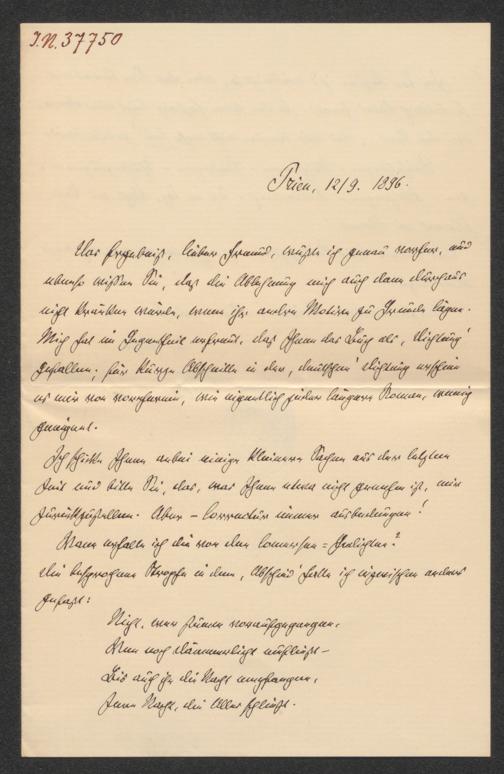 I.N. 37750
Prien, 12/9. 1896.
Das Ergebniß, lieber Freund, wußte ich genau vorher, und
ebenso wissen Sie, daß die Ablehnung mich auch dann durchaus
nicht kränken würde, wenn ihr andere Motive zu Grunde lägen.
Mich hat im Gegentheil erfreut, daß Ihnen das Buch als „Dichtung“
gefallen; für kurze Abschnitte in der „deutschen Dichtung“ erschien
es mir von vornherein, wie eigentlich jeder längere Roman, wenig
geeignet.
Ich schicke Ihnen anbei einige kleinere Sachen aus der letzten
Zeit und bitte Sie, das, was Ihnen etwa nicht genehm ist, mir
zurückzustellen. Aber – Correctur immer ausbedungen!
Wann erhalte ich die von den Gedichten?
Die besprochene Strophe in dem „Abschied“ hatte ich inzwischen anders
gefaßt:
Nicht, wer hinweg voraufgegangen,
Wem noch dämmerlicht
Bis auch ihn die Nacht empfangen,
Jene Nacht, die Alles schließt.